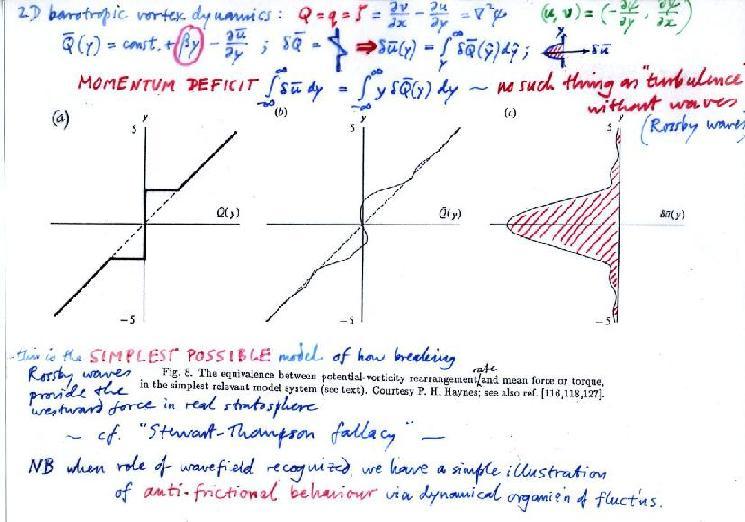 2D barotropic vortex dynamics: Q = q = ζ = ∂v/∂x − ∂u/∂y = ∇²ψ (u, v) = (−∂ψ/∂y, ∂ψ/∂x)
Q̄(y) = const. + βy − ∂ū/∂y ; δQ̄ = ⇒ δū(y) = ∫_y^∞ δQ̄(ŷ)dŷ ; δū
MOMENTUM DEFICIT ∫_{-∞}^{∞} δū dy = ∫_{-∞}^{∞} y δQ̄(y) dy ~ no such thing as "turbulence"
without waves
(Rossby waves
(a) (b) (c)
y y y
5 5 5
Q̄(y) Q̄(y) δū(y)
−5 −5 −5
- this is the SIMPLEST POSSIBLE model of how breaking
Rossby waves
provide the
westward force in real stratosphere
rate
Fig. 8. The equivalence between potential-vorticity rearrangement and mean force or torque,
in the simplest relevant model system (see text). Courtesy P. H. Haynes; see also ref. [116,118,127].
~ cf. "Stewart-Thompson fallacy" —
NB when role of wavefield recognized we have a simple illustration
of anti-frictional behaviour via dynamical organizn of fluct'ns.